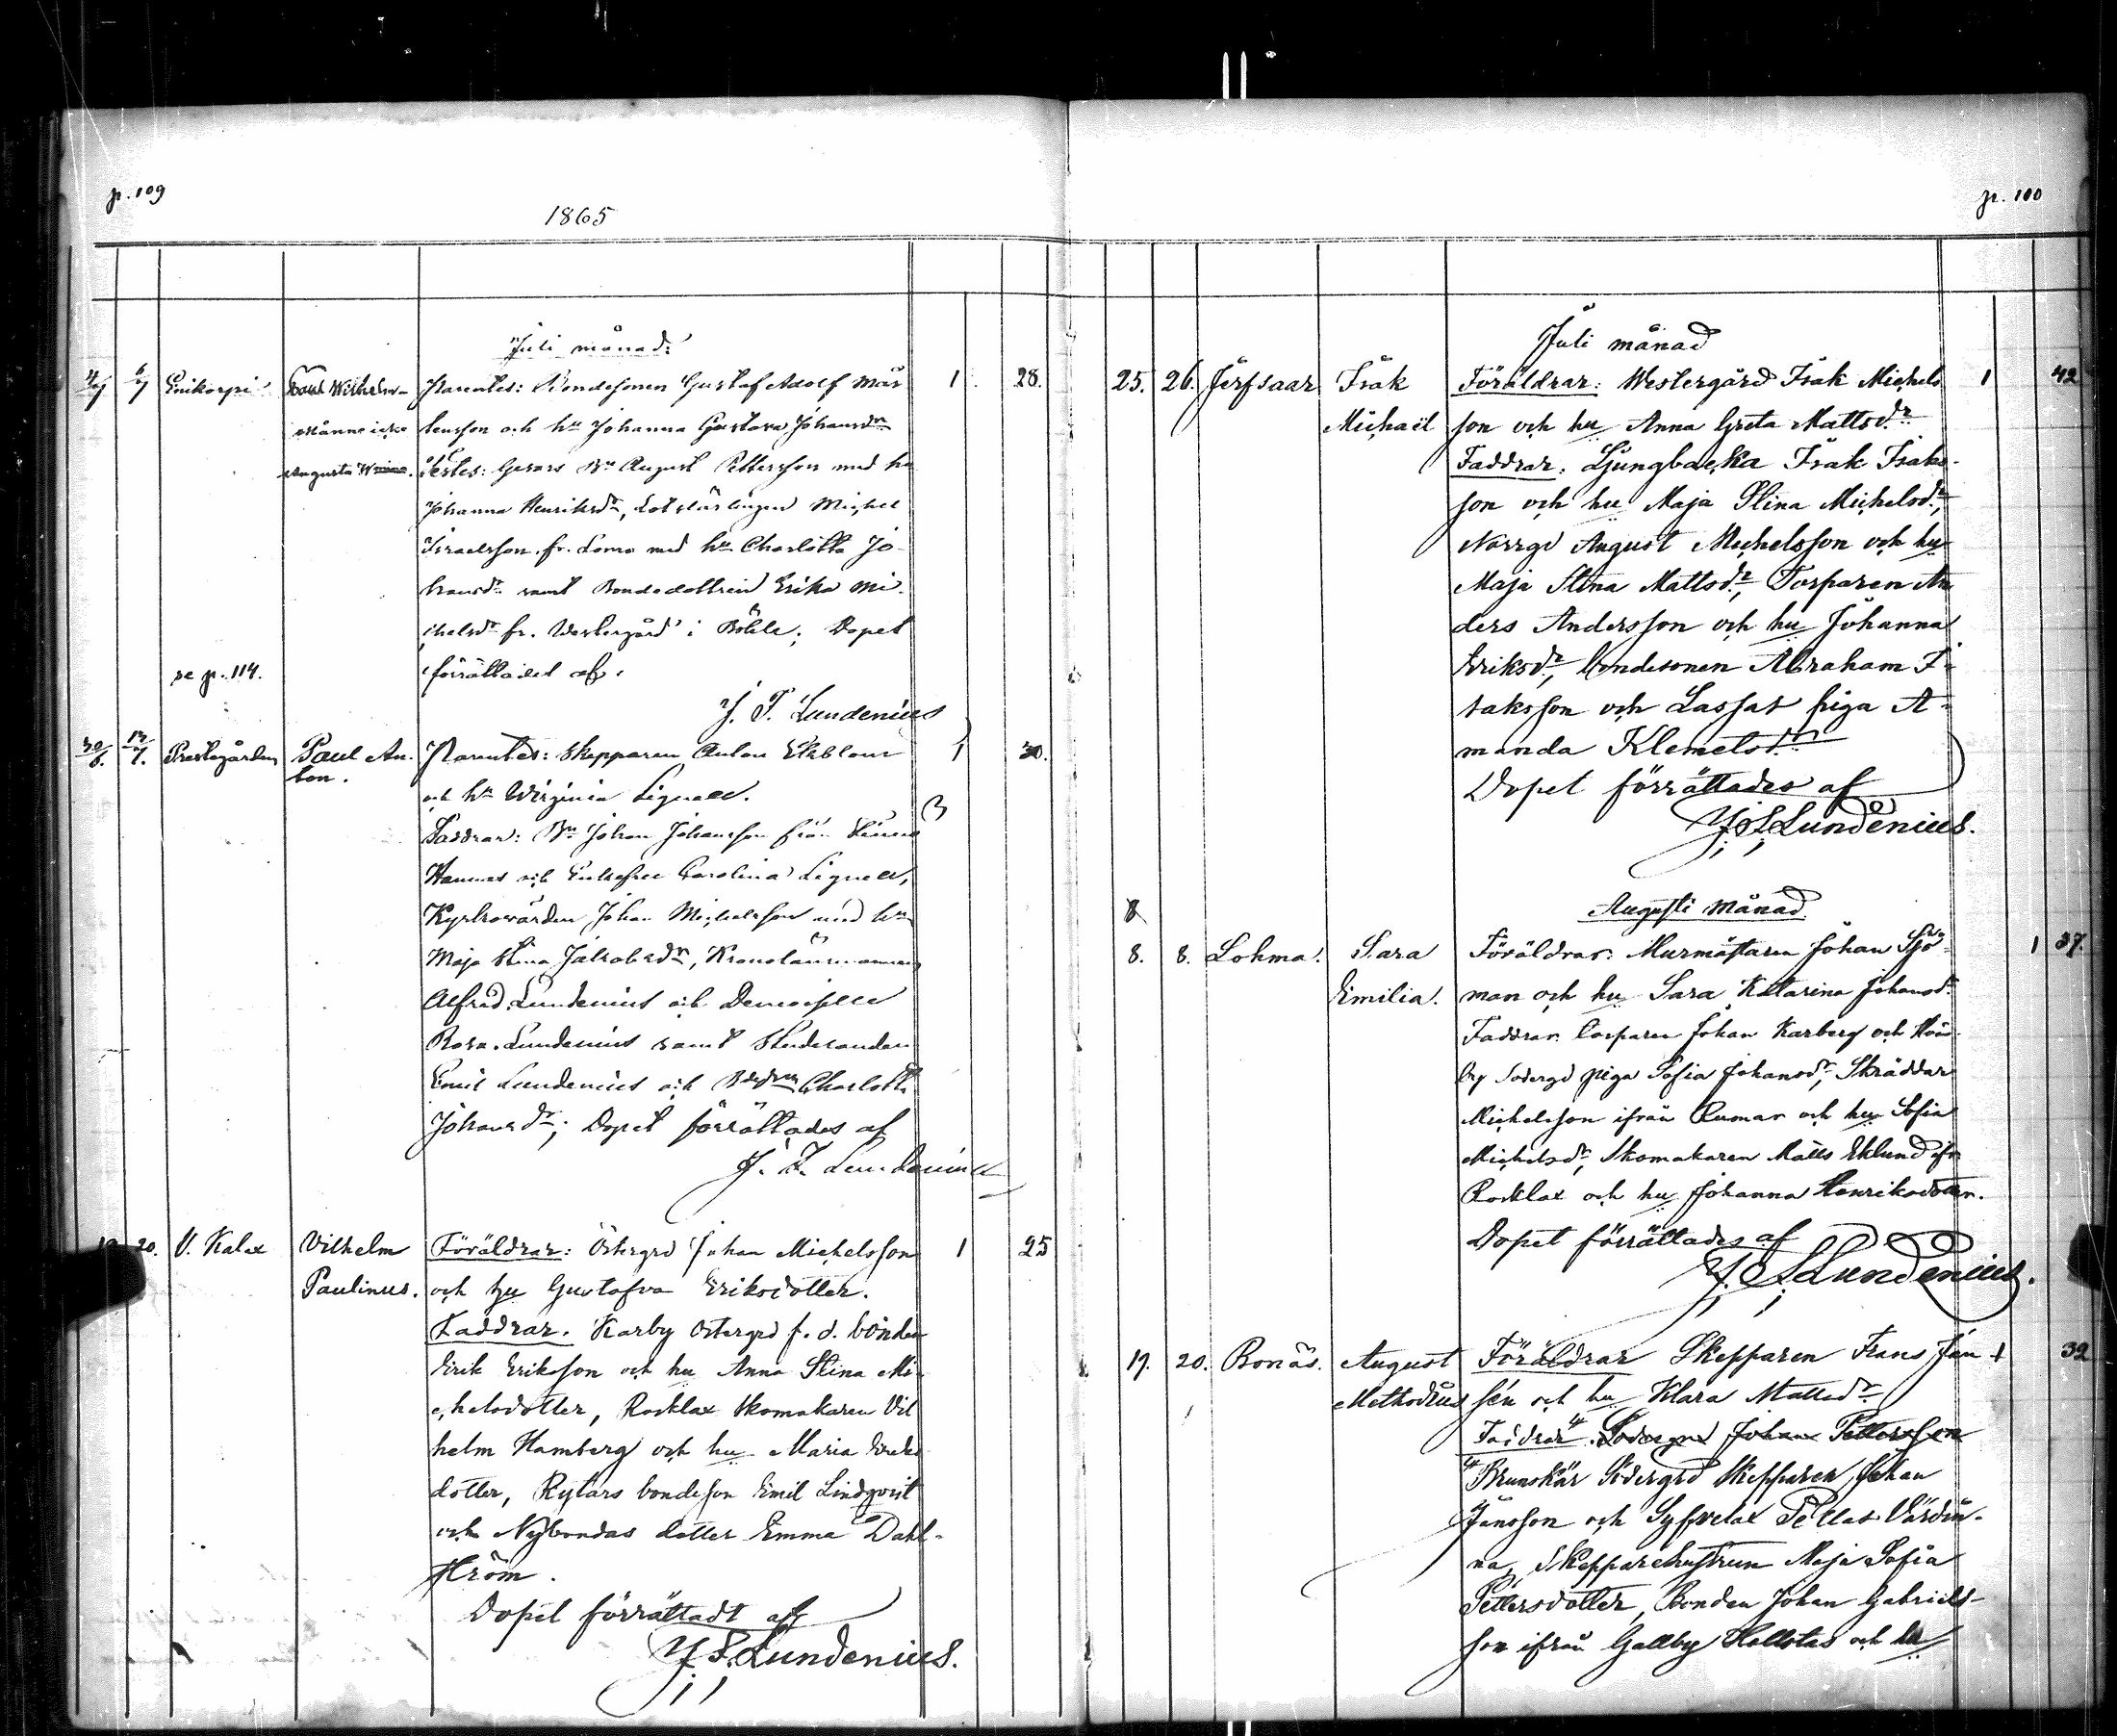 p. 109
1865
Juli månad:
4/7 6/7 Enikorpi Paul Wilhelm Parentes: Bondesonen Gustaf Adolf Mår 1 28.
Männiche tensson och hu Johanna Gustava Johansdr
Augusta Testes: Bn August Pettersson med hu
Johanna Henriksdr, Lotslärlingen Michel
Israelsson fr. Lomo med hu Charlotta Jo-
hansdr samt Bondedottren Erika Mi-
chelsdr fr. Westergård i Böhle. Dopet
se p. 114. förrättades af
J. F. Lundenius
Prestegården Paul An- Parentes: Skepparen Anton Ekblom 1 30.
ton. och hu Virginia Lignell.
Faddrar: Bn Johan Johansson från
Hannas och Carolina Lignell,
Kyrkovärden Johan Michelsson med hu
Maja Stina Jakobsdr, Kronolänsmannen
Alfred Lundenius och Demoiselle
Rosa Lundenius samt Studeranden
Emil Lundenius och Charlotta
Johansdr; Dopet förrättades af
J. F. Lundenius
20. V. Kalax Vilhelm Föräldrar: Östergrd Johan Michelsson 1 25
Paulinus. och hu Gustafva Eriksdotter.
Faddrar. Karby Östergrd f. d. bonden
Erik Eriksson och hu Anna Stina Mi-
chelsdotter, Rocklax Skomakaren Vil
helm Hamberg och hu Maria Eriks
dotter, Rytars bondeson Emil Lindqvist
och Nybondas dotter Emma Dahl-
ström.
Dopet förrättadt af
J. F. Lundenius.
p. 100
Juli månad
25. 26. Jerfsaar Isak Föräldrar: Westergård Isak Michels 1 42
Michaël son och hu Anna Greta Mattsdr
Faddrar: Ljungbacka Isak Isaks-
son och hu Maja Stina Michelsdr,
Norrgd August Michelsson och hu
Maja Stina Mattsdr, Torparen An
ders Andersson och hu Johanna
Eriksdr, bondesonen Abraham I-
saksson och Lassas piga A-
manda Klemetsdr
Dopet förrättades af
J. F. Lundenius.
8
Augusti månad.
8. 8. Lohma. Sara Föräldrar: Murmästaren Johan Sjö- 1 37.
Emilia. man och hu Sara Katarina Johansdr
Faddrar. Torparen Johan Karberg och
by Södergd piga Sofia Johansdr, Skräddar
Michelsson ifrån Rumar och hu Sofia
Michelsdr, Skomakaren Matts Eklund ifr
Rocklax och hu Johanna Henriksdotter.
Dopet förrättades af
J. F. Lundenius.
19. 20. Bonäs. August Föräldrar Skepparen Frans Jan 1 32
Methodius sén och hu Klara Mattsdr
Faddrar. Södergrd Johan Pettersson
Brunskär Södergrd Skepparen Johan
Jansson och Syfvelax Pellas Värdin-
na, Skepparehustrun Maja Sofia
Pettersdotter, Bonden Johan Gabriels-
son ifrån Gallby Hollstas och hu